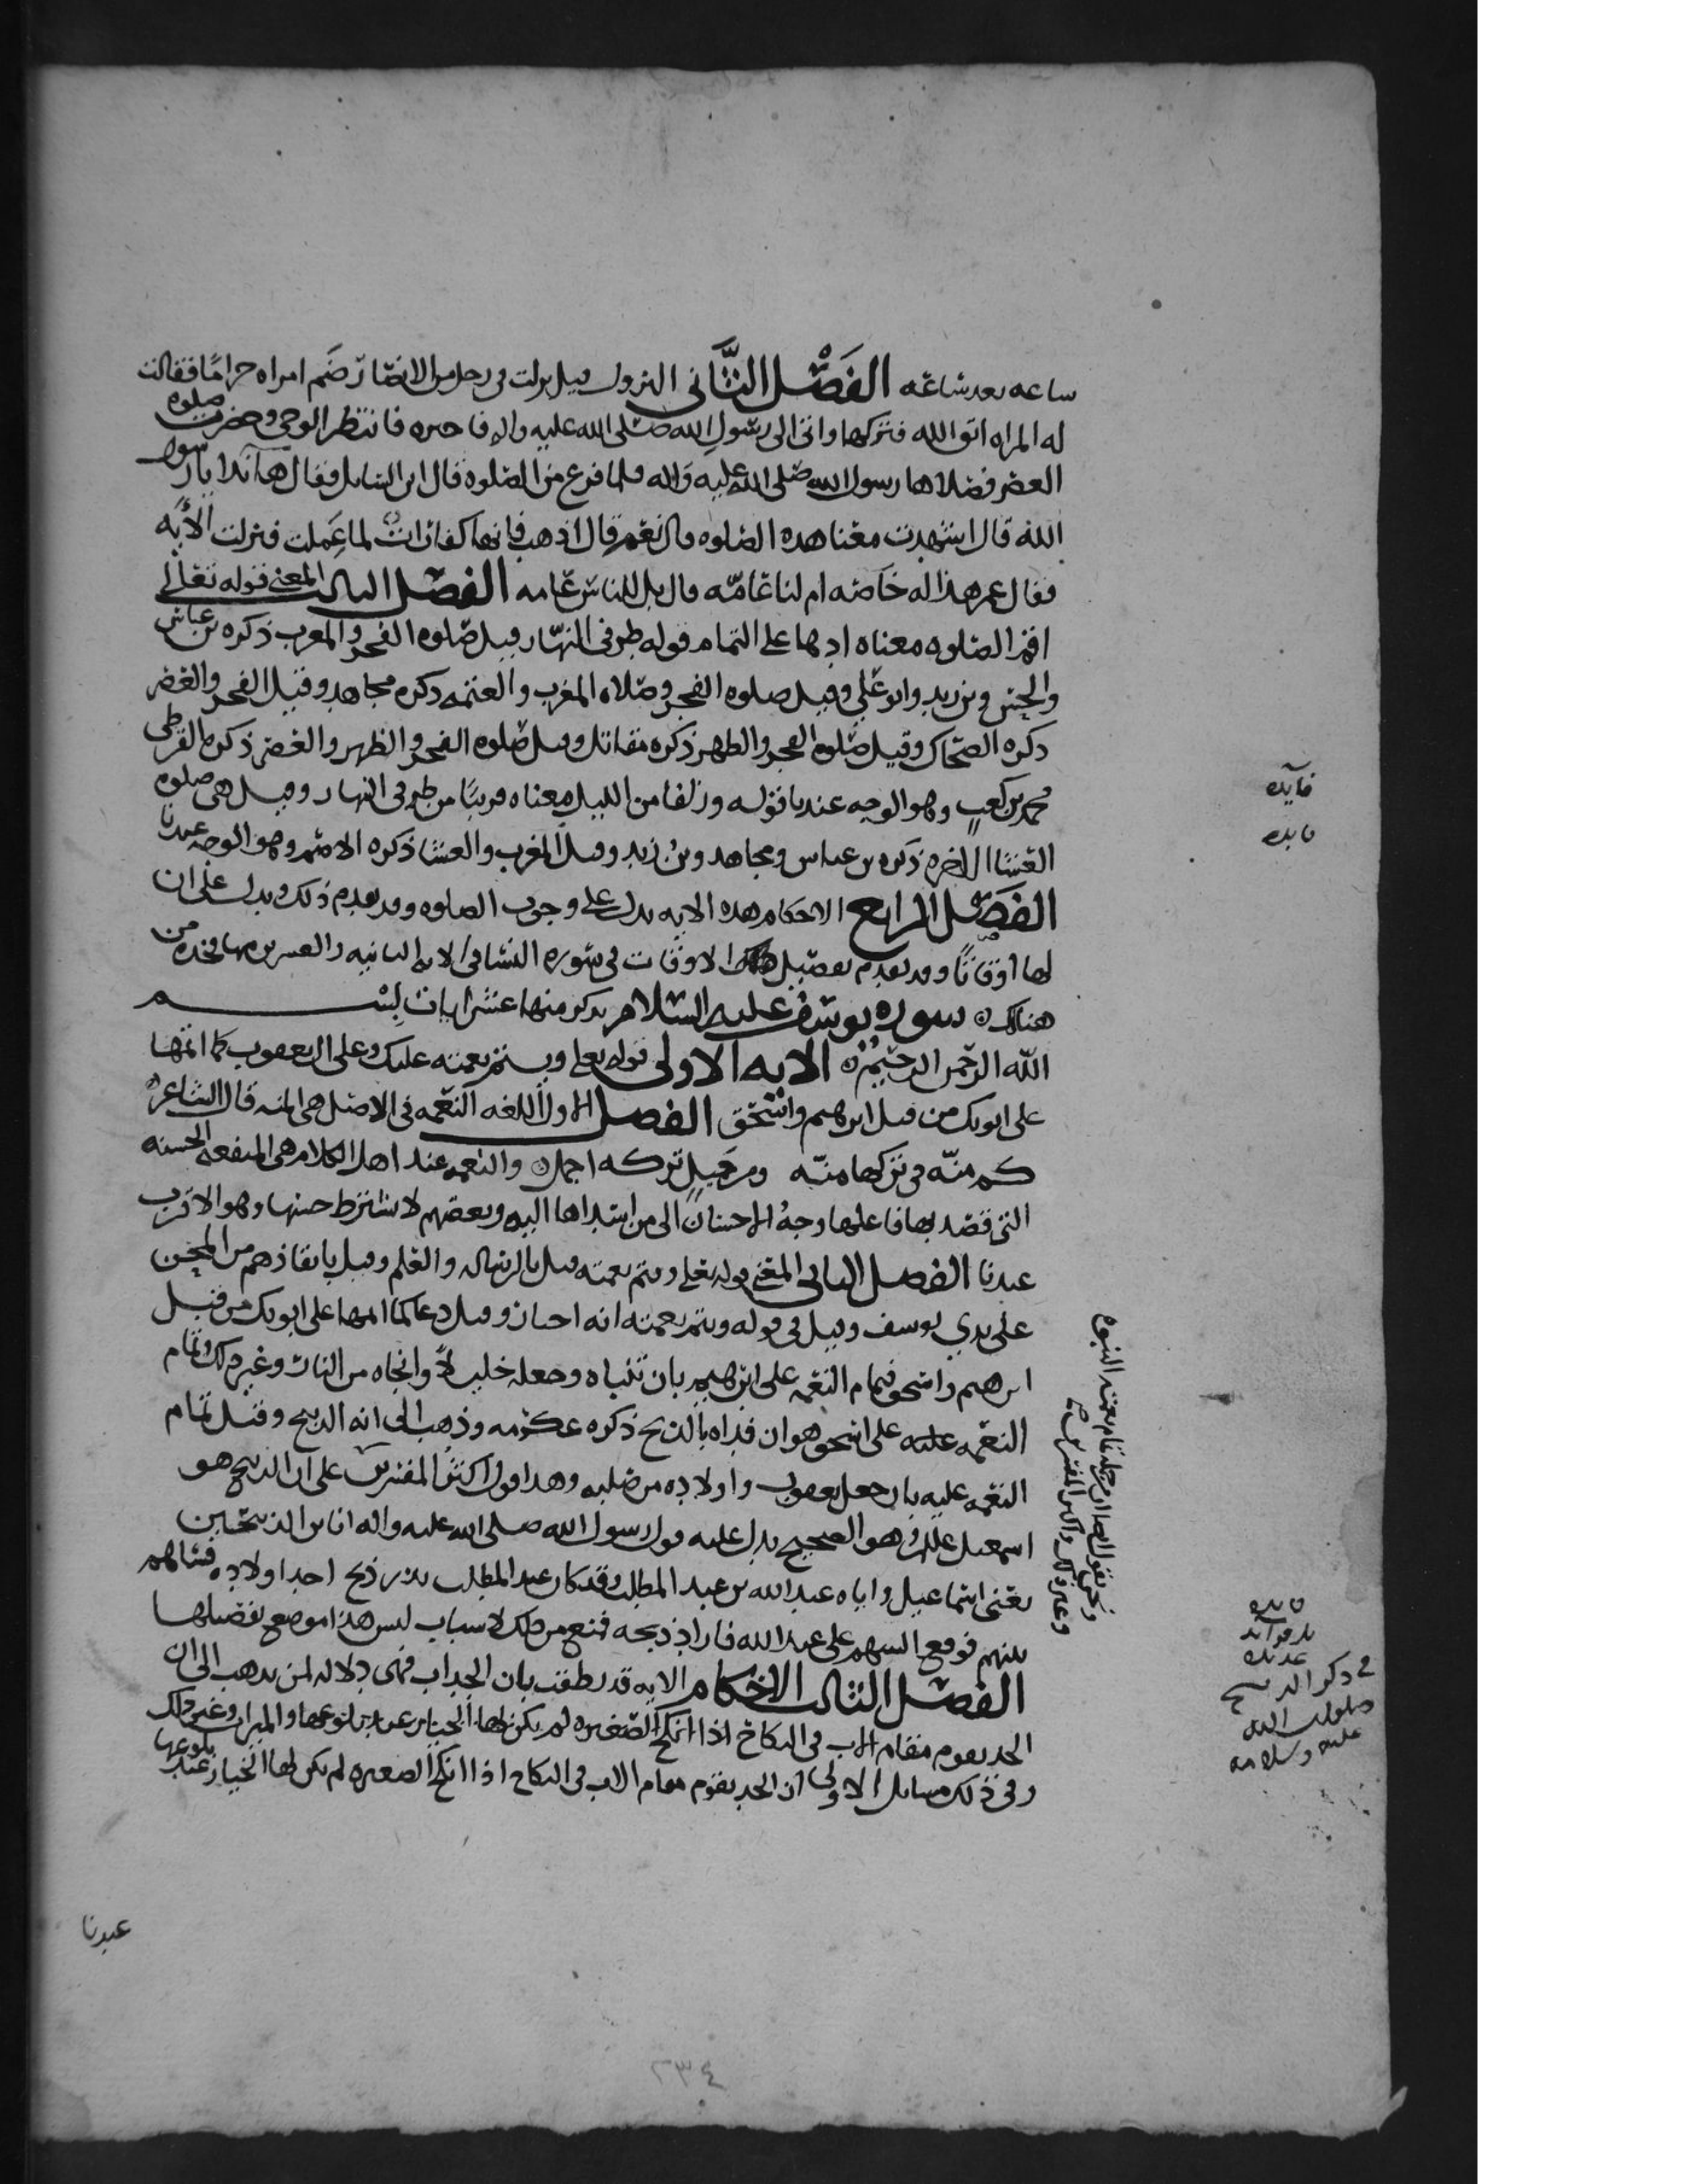 ساعه بعد ساعه الفصل الثاني النزول قيل نزلت في رجل من الانصار ضم امراه حراما فقالت
له المراه اتق الله فتركها واتى الى رسول الله صلى الله عليه واله فاخبره فانتظر الوحي وحضرت صلوه
العصر فصلاها رسول الله صلى الله عليه واله فلما فرغ من الصلوه قال اين السايل فقال ها انذا يا رسول
الله قال اشهدت معنا هذه الصلوه قال نعم قال اذهب فانها كفارات لما عملت فنزلت الايه
فقال عمر هذا له خاصه ام لنا عامه قال بل للناس عامه الفصل الثالث المعنى قوله تعالى
اقم الصلوه معناه ادها على التمام قوله طرفي النهار قيل صلوه الفجر والمغرب ذكره بن عباس
والحسن وبن زيد وابو علي وقيل صلوه الفجر وصلاه المغرب والعتمه ذكره مجاهد وقيل الفجر والعصر
ذكره الضحاك وقيل صلوه الفجر والظهر ذكره مقاتل وقيل صلوه الفجر والظهر والعصر ذكره القرظي
محمد بن كعب وهو الوجه عندنا قوله وزلفا من الليل معناه قريبا من طرفي النهار وقيل هي صلوه
العشا الاخره ذكره بن عباس ومجاهد وبن زيد وقيل المغرب والعشا ذكره الاصم وهو الوجه عندنا
الفصل الرابع الاحكام هذه الايه تدل على وجوب الصلوه وقد تقدم ذلك ويدل على ان
لها اوقاتا وقد تقدم تفصيل الاوقات في سوره النسا في الايه الثانيه والعشرين منها فخذه من
هناك سوره يوسف عليه السلام نذكر منها عشر ايات بسم
الله الرحمن الرحيم الايه الاولى قوله تعالى ويتم نعمته عليك وعلى ال يعقوب كما اتمها
على ابويك من قبل ابرهيم واسحق الفصل الاول اللغه النعمه في الاصل هي المنه قال الشاعر
كم منه في تركها منه ومن جميل تركه اجمل والنعمه عند اهل الكلام هي المنفعه الحسنه
التي قصد بها فاعلها وجه الاحسان الى من ابتداها اليه وبعضهم لا يشترط حسنها وهو الاقرب
عندنا الفصل الثاني المعنى قوله تعالى ويتم نعمته قيل بالرساله والعلم وقيل بانقاذهم من المحن
على يدي يوسف وقيل في قوله ويتم نعمته انه احسان وقيل دعا كما اتمها على ابويك من قبل
ابرهيم واسحق فتمام النعمه على ابرهيم بان نباه وجعله خليلا وانجاه من النار وغير ذلك وتمام
النعمه عليه على اسحق هو ان فداه بالذبح ذكره عكرمه وذهب الى انه الذبيح وقيل تمام
النعمه عليه بان جعل يعقوب واولاده من صلبه وهذا قول اكثر المفسرين على ان الذبيح هو
اسمعيل وهو الصحيح يدل عليه قول رسول الله صلى الله عليه واله انا بن الذبيحين
يعني اسماعيل واباه عبد الله بن عبد المطلب وقد كان عبد المطلب نذر ذبح احد اولاده فساهم
بينهم فوقع السهم على عبد الله فاراد ذبحه فمنع من ذلك لاسباب ليس هذا موضع تفصيلها
الفصل الثالث الاحكام الايه قد نطقت بان الجد اب فهي دلاله لمن يذهب الى ان
الجد يقوم مقام الاب في النكاح اذا انكح الصغيره لم يكن لها الخيار عند بلوغها والميراث وغير ذلك
وفي ذلك مسايل الاولى ان الجد يقوم مقام الاب في النكاح اذا انكح الصغيره لم يكن لها الخيار عند بلوغها
عندنا
فايده
فايده
ونحن نقول ايضا ان من جمله تمام نعمته النبوه
وغير ذلك
فايده
في ذكر الذبيح
صلوات الله
عليه وسلامه
٢٣٤